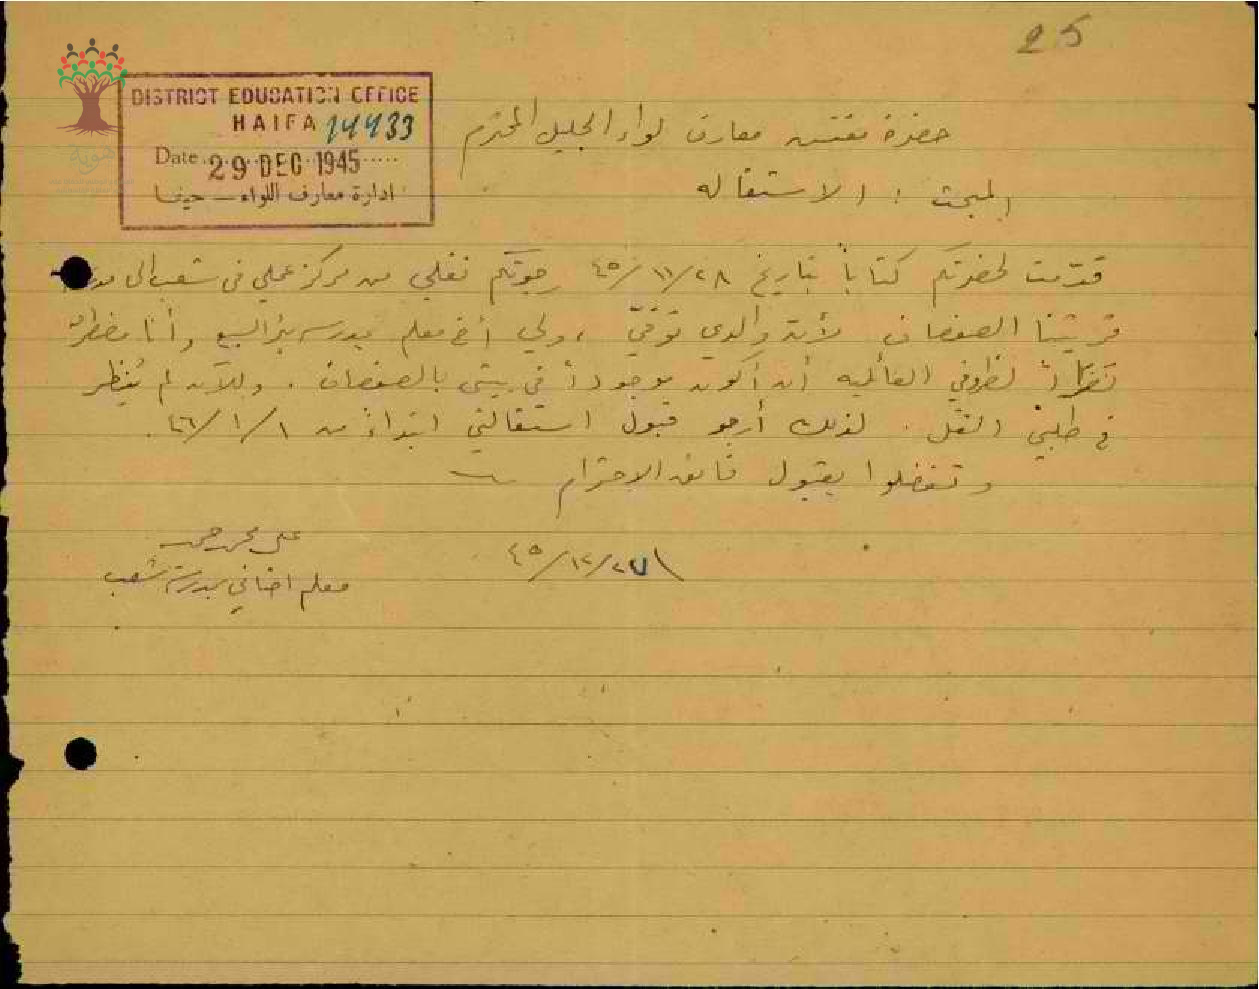 25
DISTRICT EDUCATION OFFICE
HAIFA 14433
Date 29 DEC 1945
ادارة معارف اللواء - حيفا
هوية
حضرة مفتش معارف لواء الجليل المحترم
المبحث : الاستقاله
قدّمت لحضرتكم كتاباً بتاريخ ٢٨/١١/٤٥ رجوتكم نقلي من مركز عملي في شعب الى
قريتنا الصفصاف لأن والدي توفيّ ، ولي أخ معلم بمدرسة بئر السبع وأنا مضطر
نظراً لظروفي العائليه أن أكون موجوداً في بيتي بالصفصاف . وللآن لم يُنظر
في طلبي النقل . لذلك أرجو قبول استقالتي ابتداءً من ١/١/٤٦ .
وتفضلوا بقبول فائق الاحترام
٢٧/١٢/٤٥
علي محمد حمد
معلم اضافي بمدرسة شعب